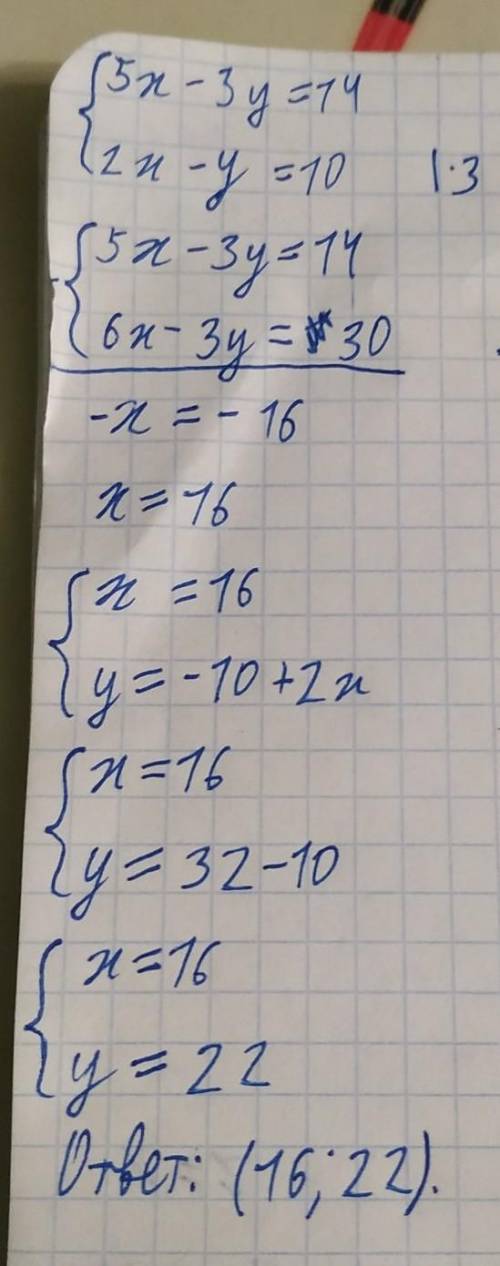 5x - 3y = 14
2x - y = 10 |·3
5x - 3y = 14
6x - 3y = 30
-x = - 16
x = 16
x = 16
y = -10 + 2x
x = 16
y = 32 - 10
x = 16
y = 22
Ответ: (16; 22).